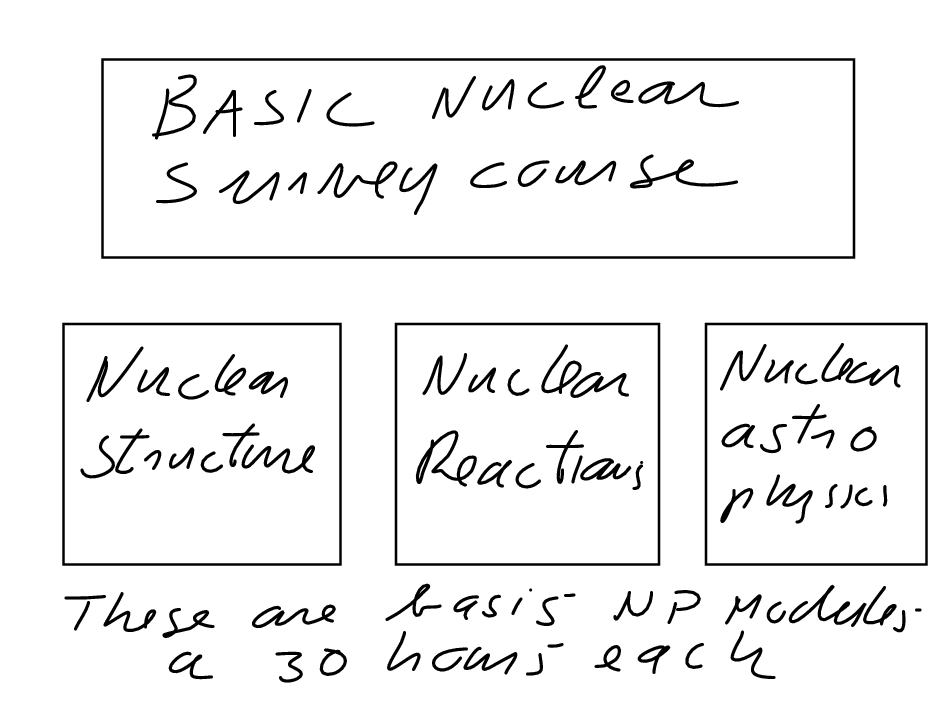 BASIC Nuclear
Survey course
Nuclear
Structure
Nuclear
Reactions
Nuclear
astro
physics
These are basis NP Modules
a 30 hours each